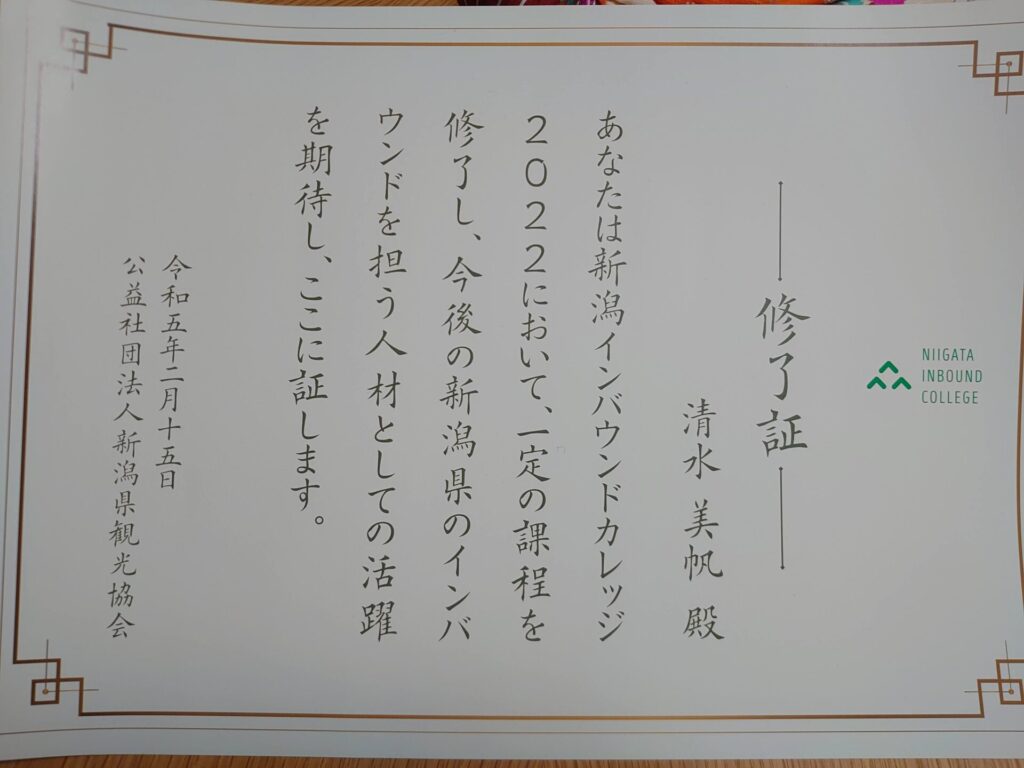 NIIGATA
INBOUND
COLLEGE
修了証
清水 美帆 殿
あなたは新潟インバウンドカレッジ
２０２２において、一定の課程を
修了し、今後の新潟県のインバ
ウンドを担う人材としての活躍
を期待し、ここに証します。
令和五年二月十五日
公益社団法人新潟県観光協会